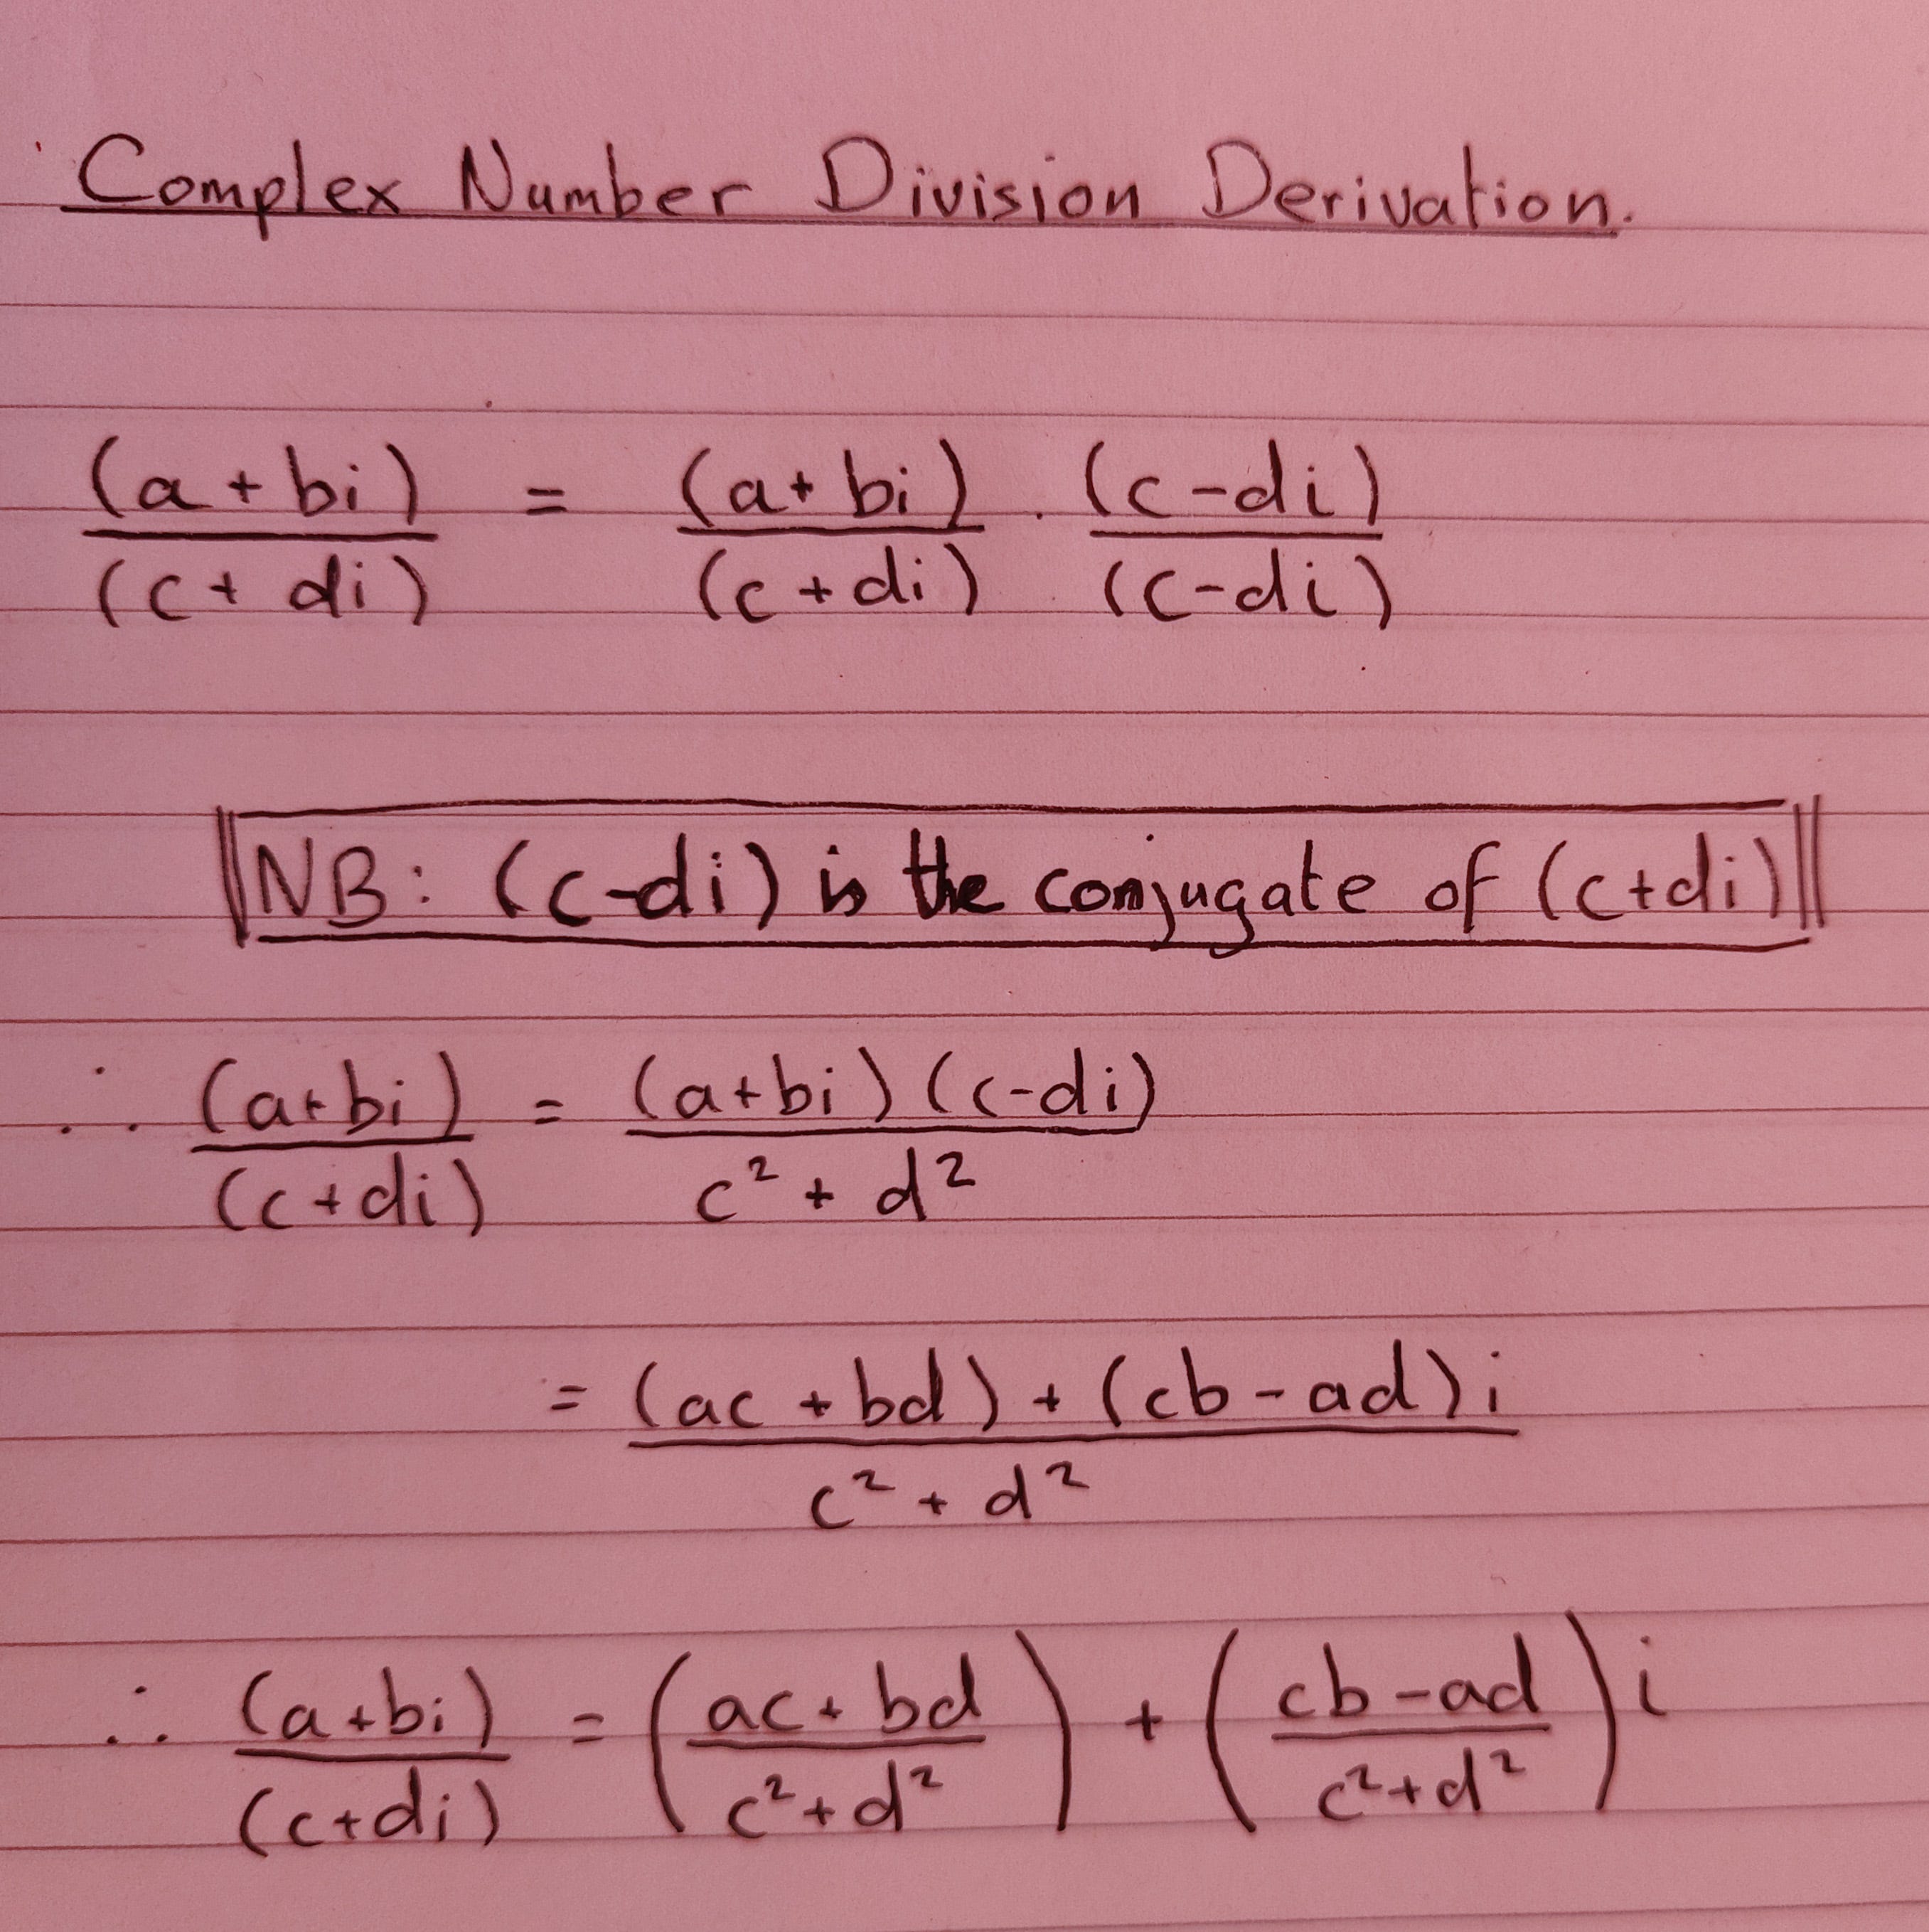 Complex Number Division Derivation.
(a + bi) / (c + di) = (a + bi) / (c + di) . (c - di) / (c - di)
NB: (c-di) is the conjugate of (c+di)
∴ (a+bi) / (c+di) = (a+bi)(c-di) / c² + d²
= (ac + bd) + (cb - ad)i / c² + d²
∴ (a+bi) / (c+di) = (ac + bd / c²+d²) + (cb-ad / c²+d²)i